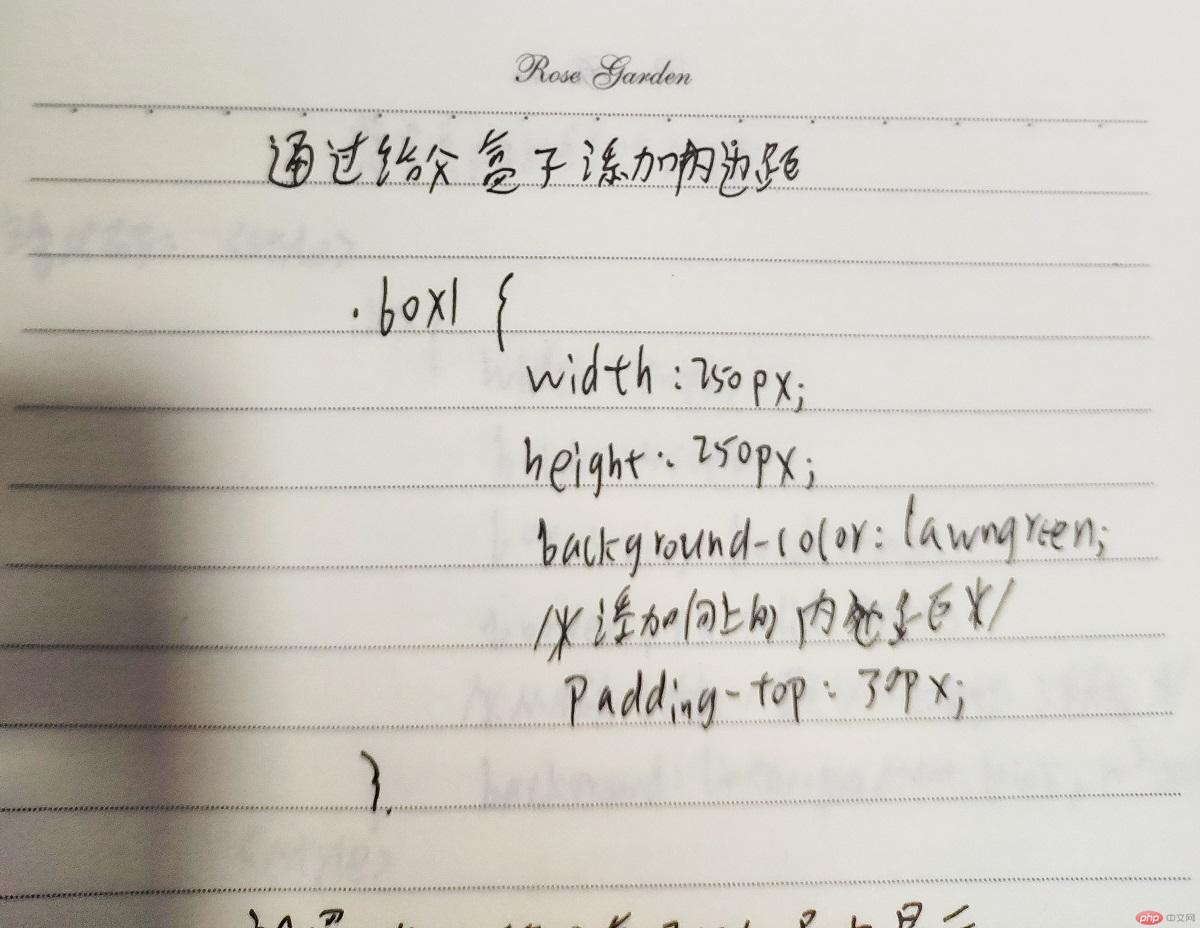 Rose Garden
通过给父盒子添加内边距
.box1 {
width:250px;
height:250px;
background-color:lawngreen;
/*添加向上的内边距*/
padding-top:30px;
}.
php中文网